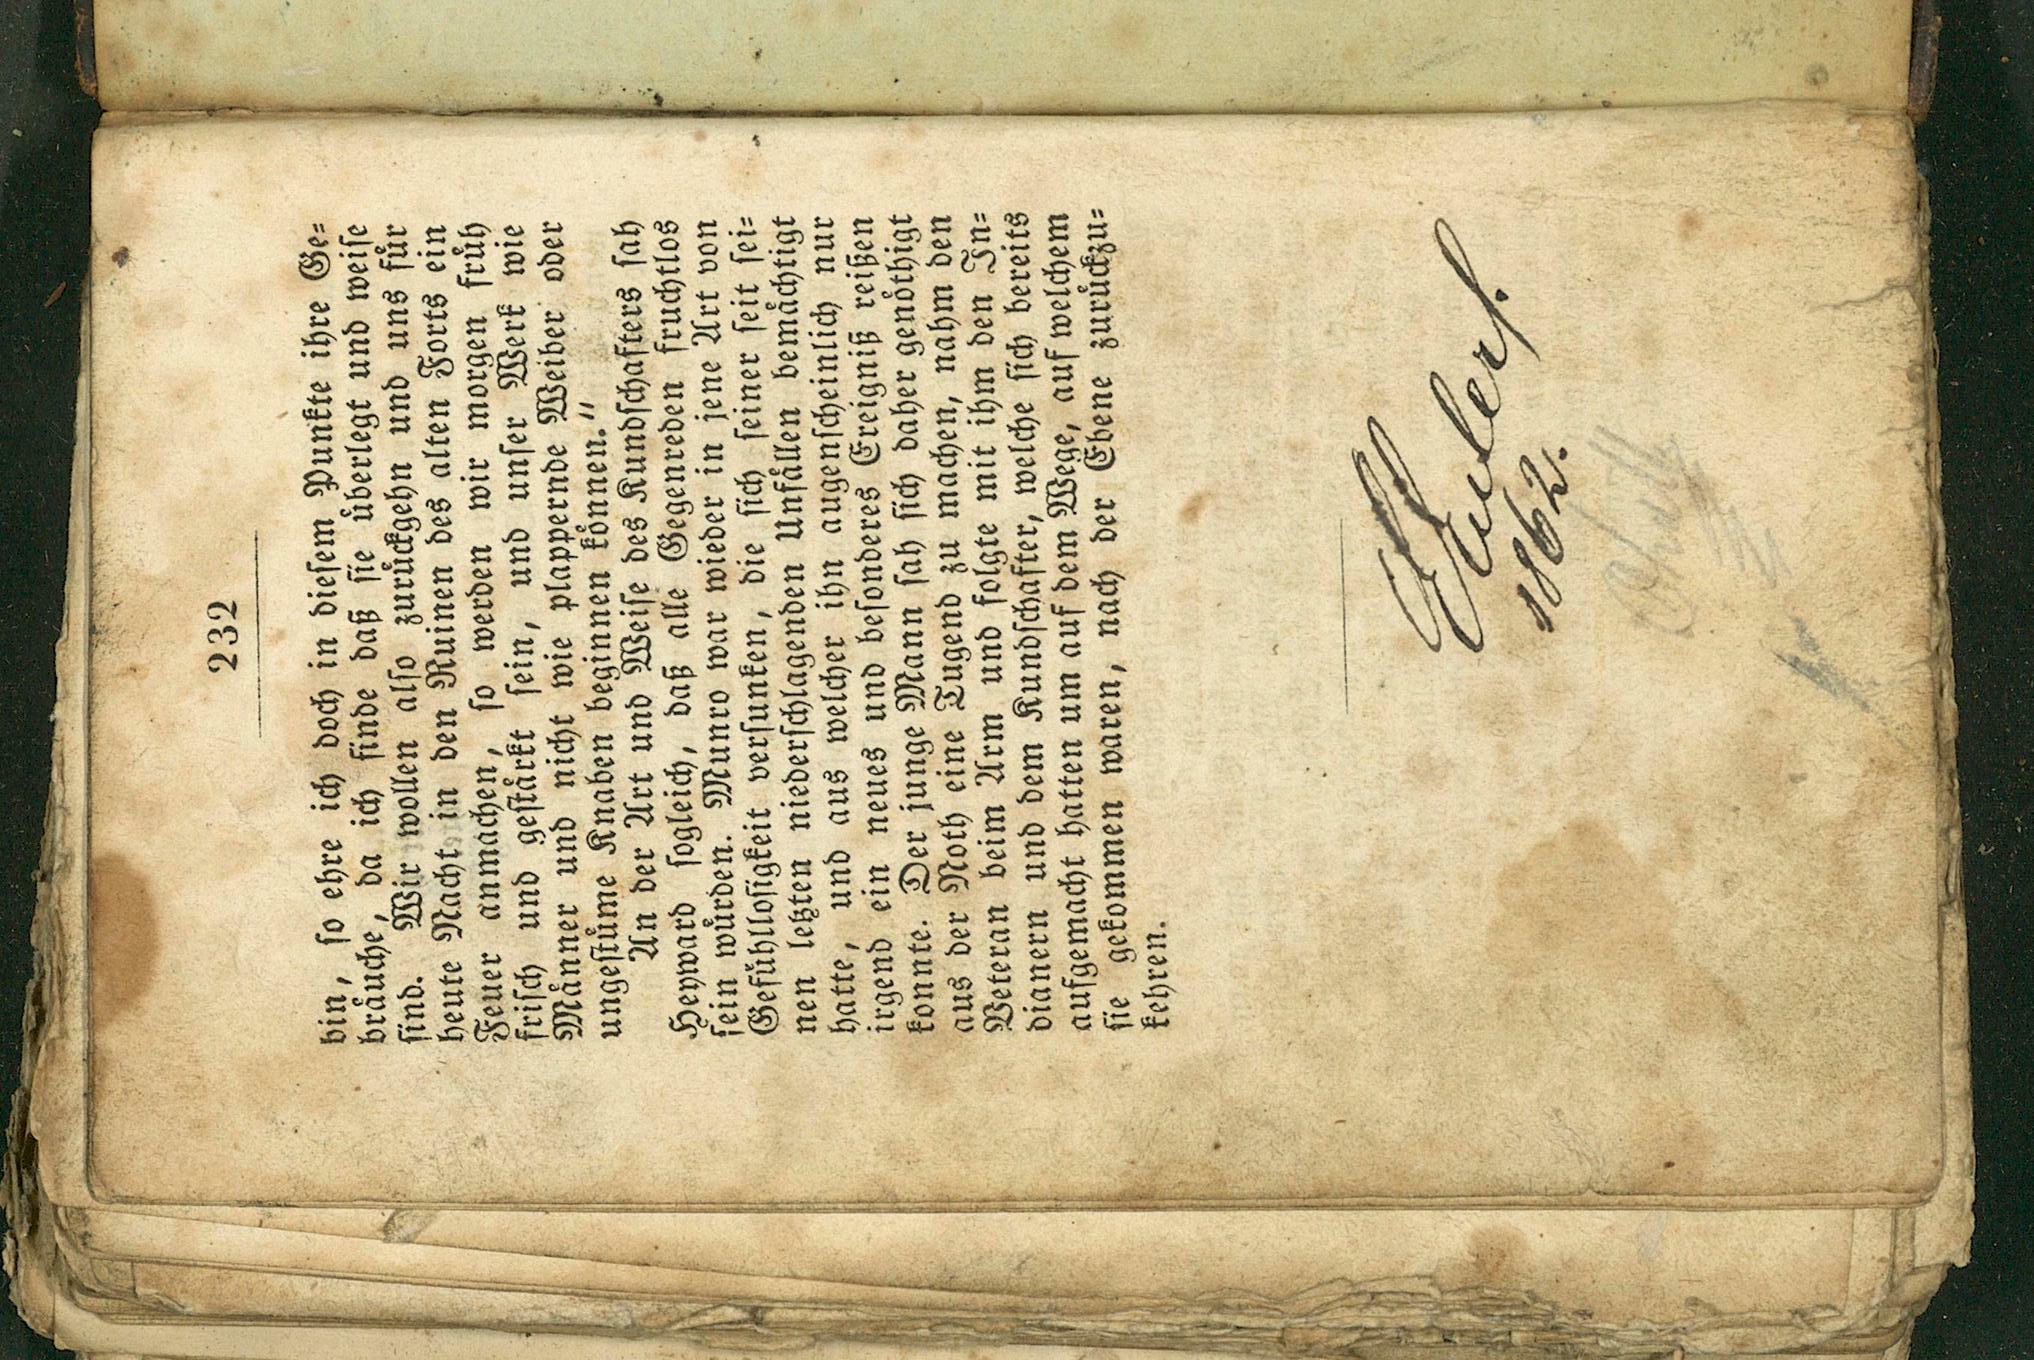 232
bin, so ehre ich doch in diesem Punkte ihre Ge=
bräuche, da ich finde daß sie überlegt und weise
sind. Wir wollen also zurückgehn und uns für
heute Nacht in den Ruinen des alten Forts ein
Feuer anmachen, so werden wir morgen früh
frisch und gestärkt sein, und unser Werk wie
Männer und nicht wie plappernde Weiber oder
ungestüme Knaben beginnen können.“
An der Art und Weise des Kundschafters sah
Heyward sogleich, daß alle Gegenreden fruchtlos
sein würden. Munro war wieder in jene Art von
Gefühllosigkeit versunken, die sich seiner seit sei=
nen letzten niederschlagenden Unfällen bemächtigt
hatte, und aus welcher ihn augenscheinlich nur
irgend ein neues und besonderes Ereigniß reißen
konnte. Der junge Mann sah sich daher genöthigt
aus der Noth eine Tugend zu machen, nahm den
Veteran beim Arm und folgte mit ihm den In=
dianern und dem Kundschafter, welche sich bereits
aufgemacht hatten um auf dem Wege, auf welchem
sie gekommen waren, nach der Ebene zurückzu=
kehren.
1862.